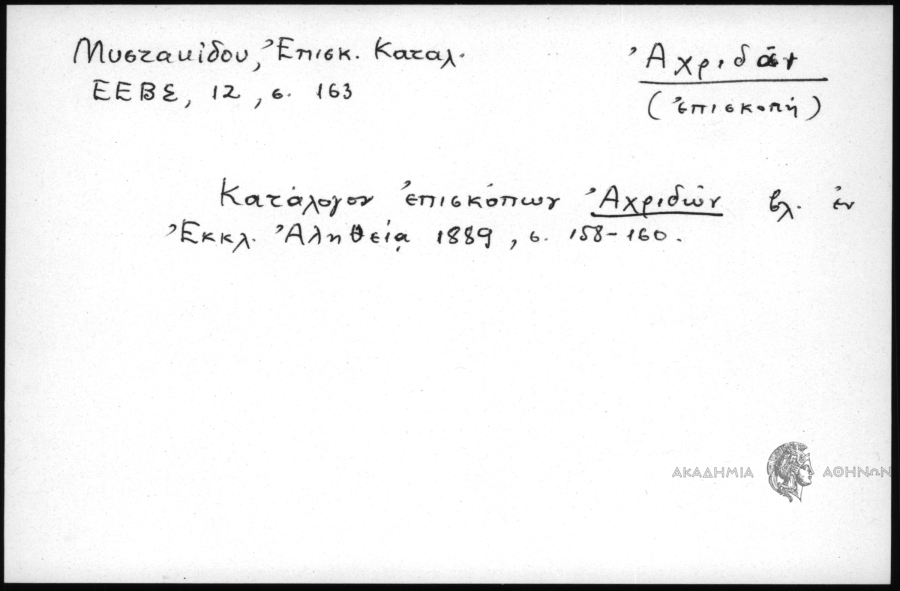 Μυστακίδου, Ἐπισκ. Καταλ.
ΕΕΒΣ, 12, σ. 163
Ἀχριδῶν
(ἐπισκοπή)
Κατάλογον ἐπισκόπων Ἀχριδῶν βλ. ἐν
Ἐκκλ. Ἀληθείᾳ 1889, σ. 158-160.
ΑΚΑΔΗΜΙΑ ΑΘΗΝΩΝ